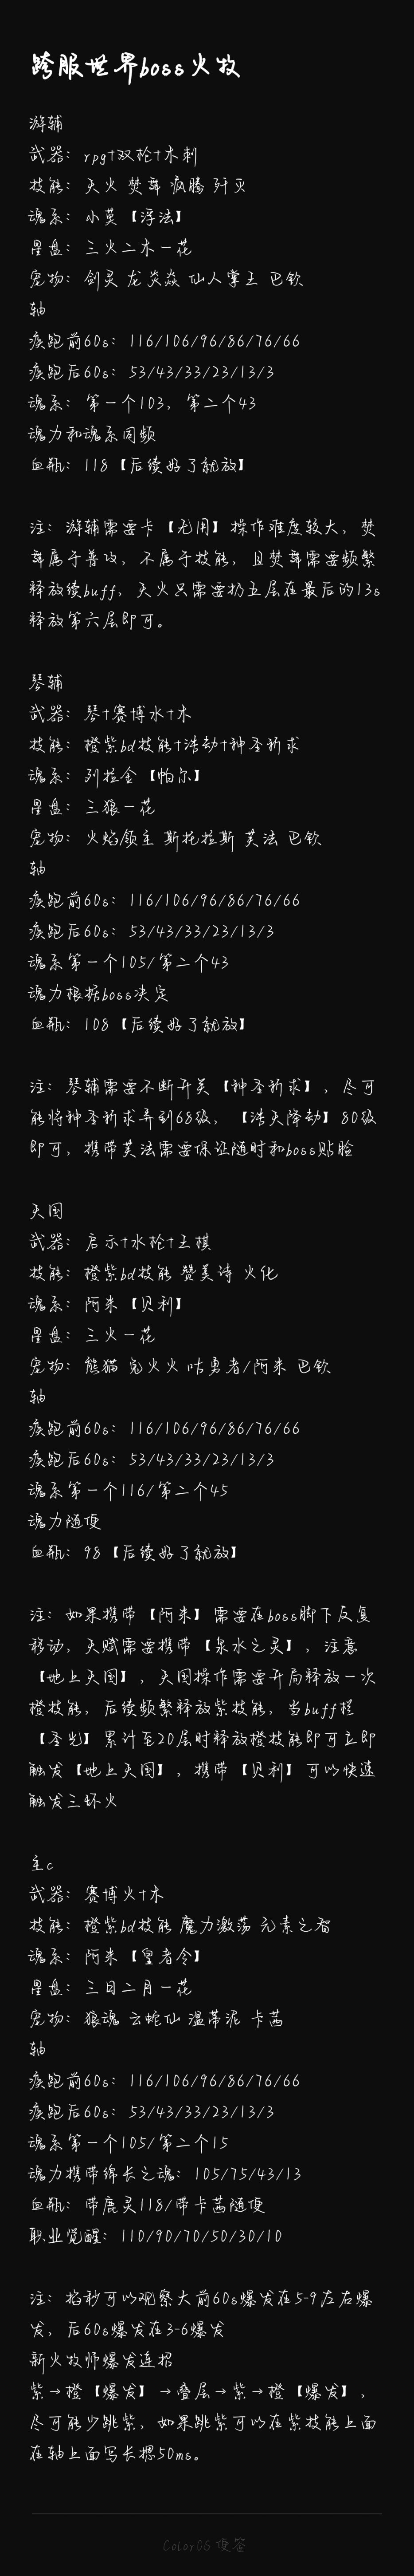 跨服世界boss火牧
游辅
武器：rpg+双枪+木刺
技能：天火 焚舞 疯腾 歼灭
魂系：小莫【浮法】
星盘：三火二木一花
宠物：剑灵 龙炎焱 仙人掌王 巴钦
轴
疾跑前60s：116/106/96/86/76/66
疾跑后60s：53/43/33/23/13/3
魂系：第一个103，第二个43
魂力和魂系同频
血瓶：118【后续好了就放】
注：游辅需要卡【无用】操作难度较大，焚
舞属于普攻，不属于技能，且焚舞需要频繁
释放续buff，天火只需要扔五层在最后的13s
释放第六层即可。
琴辅
武器：琴+赛博水+木
技能：橙紫bd技能+浩劫+神圣祈求
魂系：列拉金【帕尔】
星盘：三狼一花
宠物：火焰领主 斯托拉斯 芙法 巴钦
轴
疾跑前60s：116/106/96/86/76/66
疾跑后60s：53/43/33/23/13/3
魂系第一个105/第二个43
魂力根据boss决定
血瓶：108【后续好了就放】
注：琴辅需要不断开关【神圣祈求】，尽可
能将神圣祈求弄到68级，【浩天降劫】80级
即可，携带芙法需要保证随时和boss贴脸
天国
武器：启示+水枪+王棋
技能：橙紫bd技能 赞美诗 火化
魂系：阿朱【贝利】
星盘：三火一花
宠物：熊猫 兔火火 咕勇者/阿朱 巴钦
轴
疾跑前60s：116/106/96/86/76/66
疾跑后60s：53/43/33/23/13/3
魂系第一个116/第二个45
魂力随便
血瓶：98【后续好了就放】
注：如果携带【阿朱】需要在boss脚下反复
移动，天赋需要携带【泉水之灵】，注意
【地上天国】，天国操作需要开局释放一次
橙技能，后续频繁释放紫技能，当buff栏
【圣光】累计至20层时释放橙技能即可立即
触发【地上天国】，携带【贝利】可以快速
触发三环火
主c
武器：赛博火+木
技能：橙紫bd技能 魔力激荡 元素之智
魂系：阿朱【皇者令】
星盘：三日二月一花
宠物：狼魂 云蛇仙 温蒂泥 卡茜
轴
疾跑前60s：116/106/96/86/76/66
疾跑后60s：53/43/33/23/13/3
魂系第一个105/第二个15
魂力携带绵长之魂：105/75/43/13
血瓶：带鹿灵118/带卡茜随便
职业觉醒：110/90/70/50/30/10
注：掐秒可以观察大前60s爆发在5-9左右爆
发，后60s爆发在3-6爆发
新火牧师爆发连招
紫→橙【爆发】→叠层→紫→橙【爆发】，
尽可能少跳紫，如果跳紫可以在紫技能上面
在轴上面写长摁50ms。
ColorOS 便签